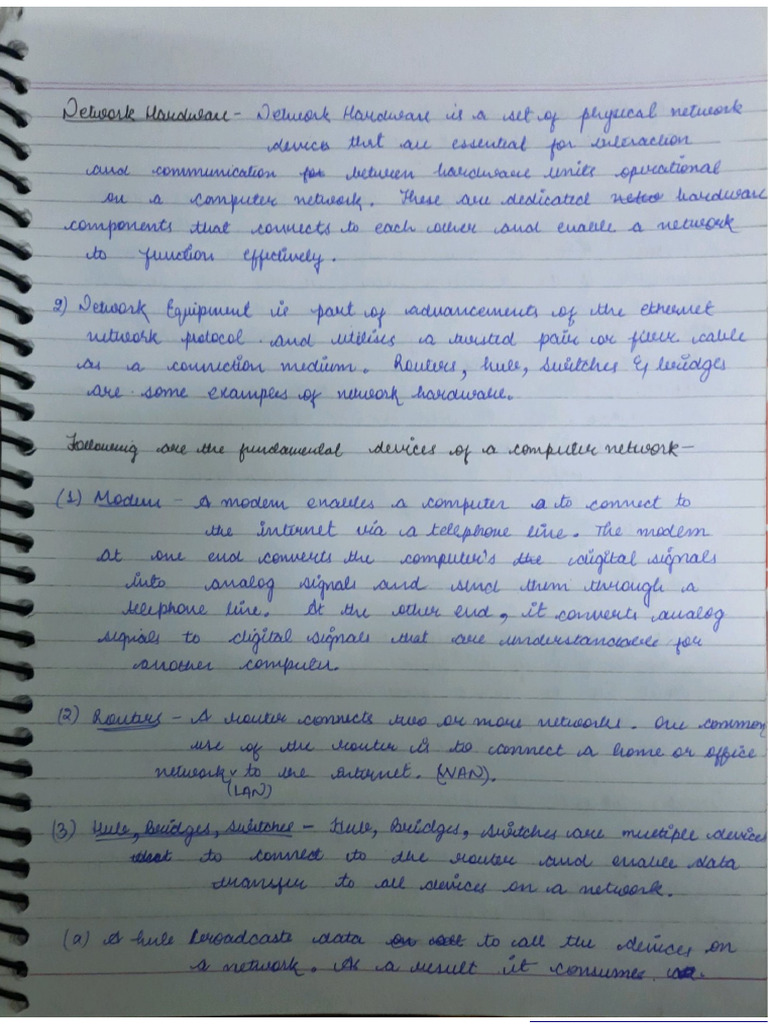 Network Hardware - Network Hardware is a set of physical network
devices that are essential for interaction
and communication for between hardware units operational
on a computer network. These are dedicated hardware
components that connects to each other and enable a network
to function effectively.
2) Network Equipment is part of advancements of the ethernet
network protocol and utilises a twisted pair or fiber cable
as a connection medium. Routers, hub, switches & bridges
are some examples of network hardware.
Following are the fundamental devices of a computer network -
(1) Modem - A modem enables a computer to connect to
the internet via a telephone line. The modem
at one end converts the computer's the digital signals
into analog signals and send them through a
telephone line. At the other end, it converts analog
signals to digital signals that are understandable for
another computer.
(2) Routers - A router connects two or more networks. One common
use of the router is to connect a home or office
network to the internet. (WAN).
(LAN)
(3) Hub, Bridges, Switches - Hub, Bridges, switches are multiple devices
that to connect to the router and enable data
transfer to all devices on a network.
(a) A hub broadcasts data to all the devices on
a network. As a result it consumes